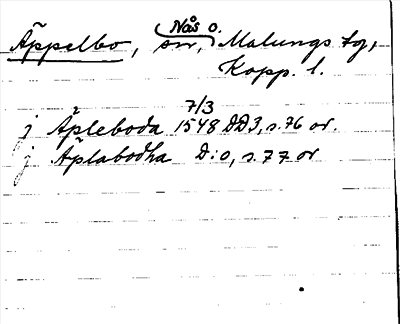 Nås o.
Äppelbo, sn, Malungs tg,
Kopp. l.
7/3
j Äpleboda 1548 DD3, s. 76 or.
j Äplabodha D:o, s. 77 or